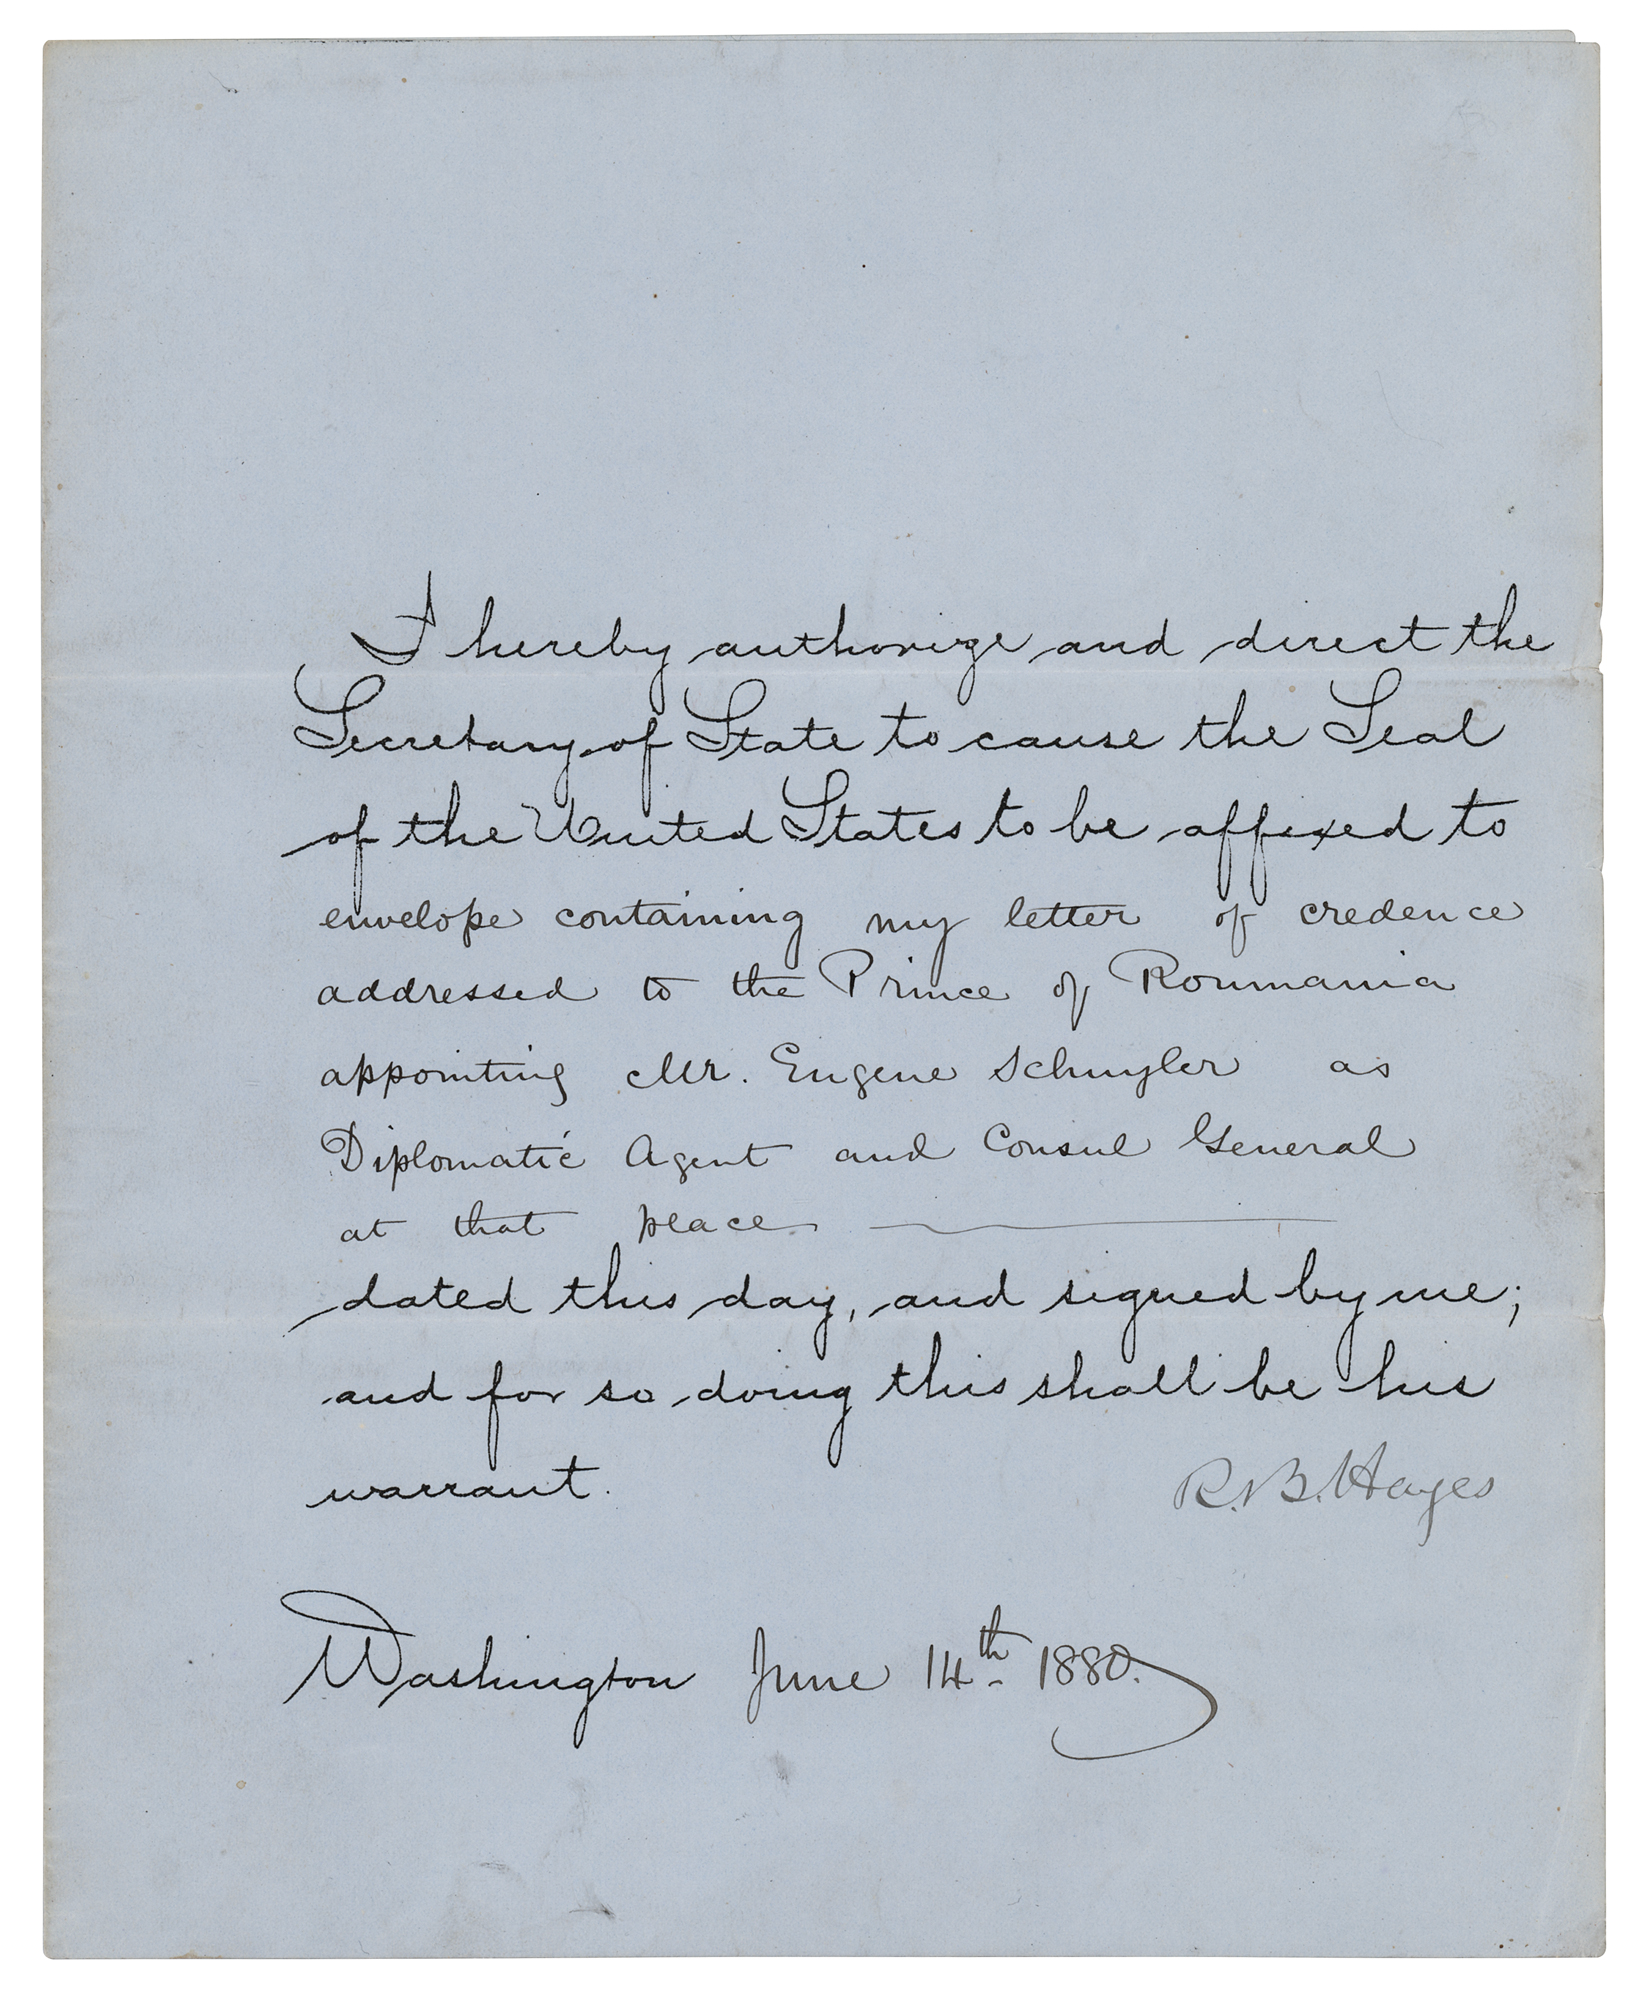 I hereby authorize and direct the
Secretary of State to cause the Seal
of the United States to be affixed to
envelope containing my letter of credence
addressed to the Prince of Roumania
appointing Mr. Eugene Schuyler as
Diplomatic Agent and Consul General
at that place
dated this day, and signed by me;
and for so doing this shall be his
warrant.
R. B. Hayes
Washington June 14th 1880.